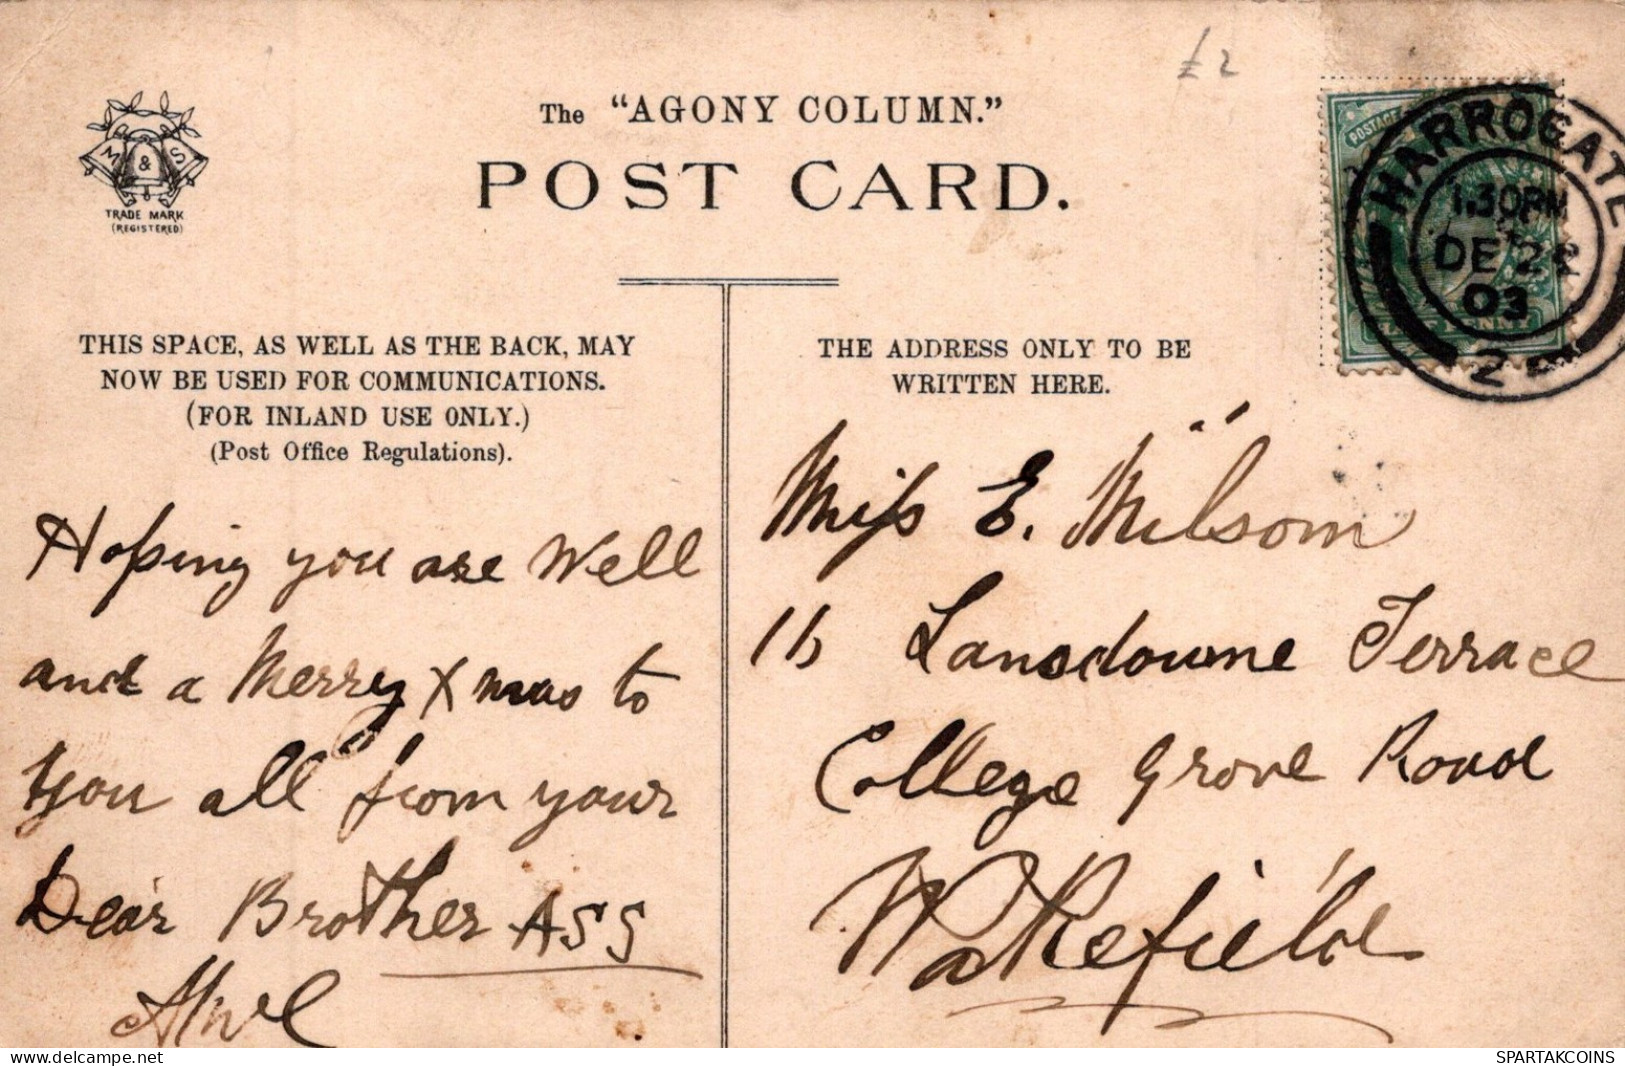 £2
The "AGONY COLUMN."
POST CARD.
M & S
TRADE MARK
(REGISTERED)
POSTAGE
HALF PENNY
HARROGATE
1.30PM
DE 24
03
2
THIS SPACE, AS WELL AS THE BACK, MAY
NOW BE USED FOR COMMUNICATIONS.
(FOR INLAND USE ONLY.)
(Post Office Regulations).
Hoping you are Well
and a Merry Xmas to
You all from your
Dear Brother ASS
THE ADDRESS ONLY TO BE
WRITTEN HERE.
Miss E. Milsom
16 Lansdowne Terrace
College Grove Road
Wakefield
www.delcampe.net
SPARTAKCOINS